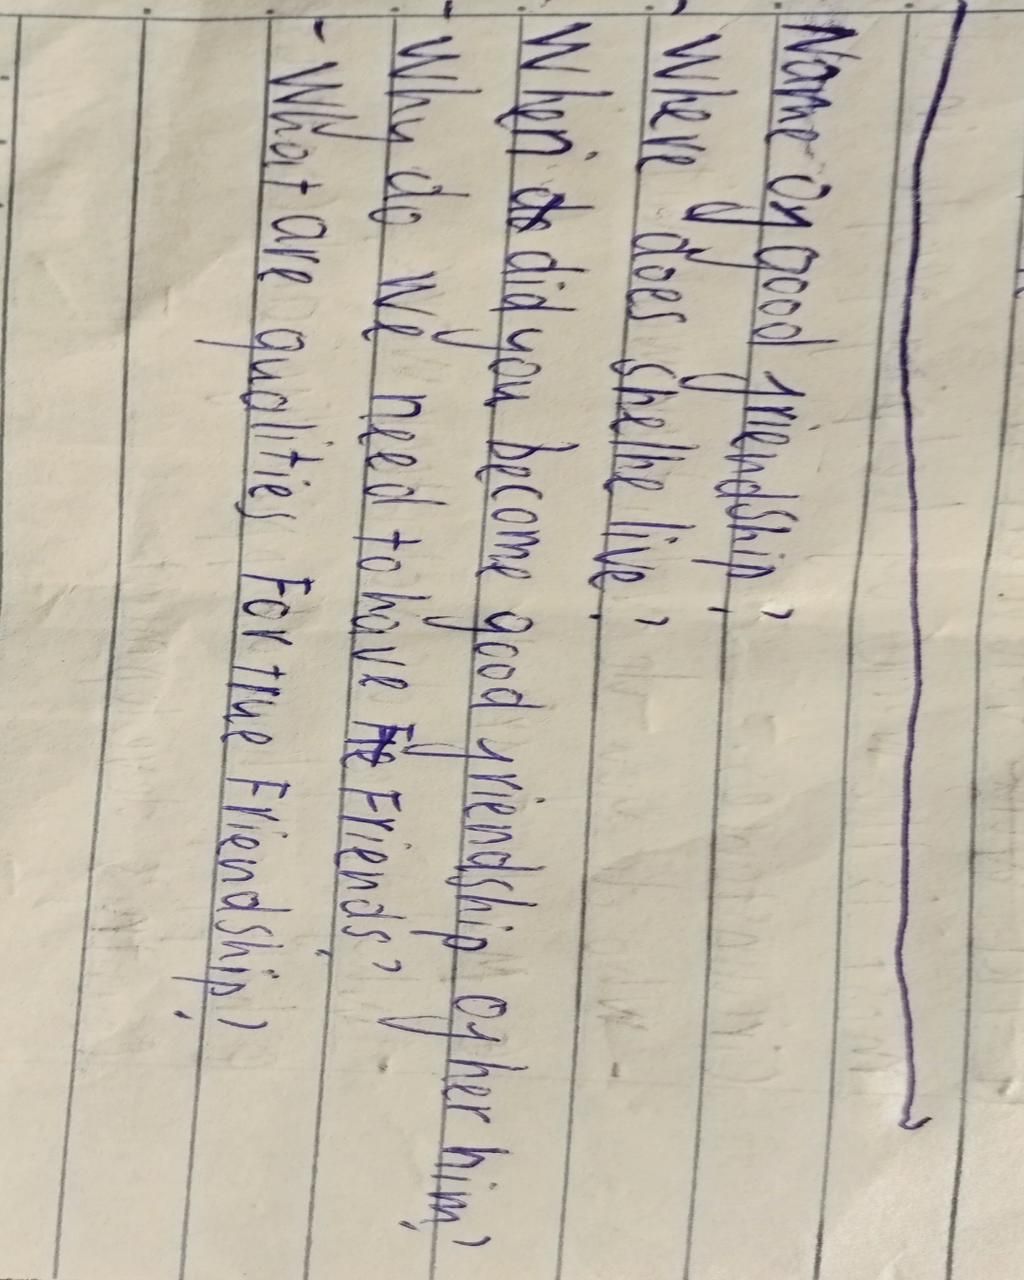 Name of good friendship?
- Where does she/he live?
- When did you become good friendship of her him?
- Why do We need to have Friends?
- What are qualities For true Friendship?